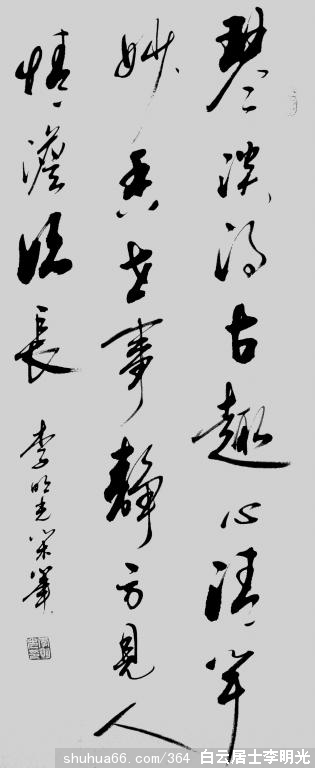 琴淡得古趣心清聞
妙香世事靜方見人
情澹始長
李明光
shuhua66.com/364 白云居士李明光